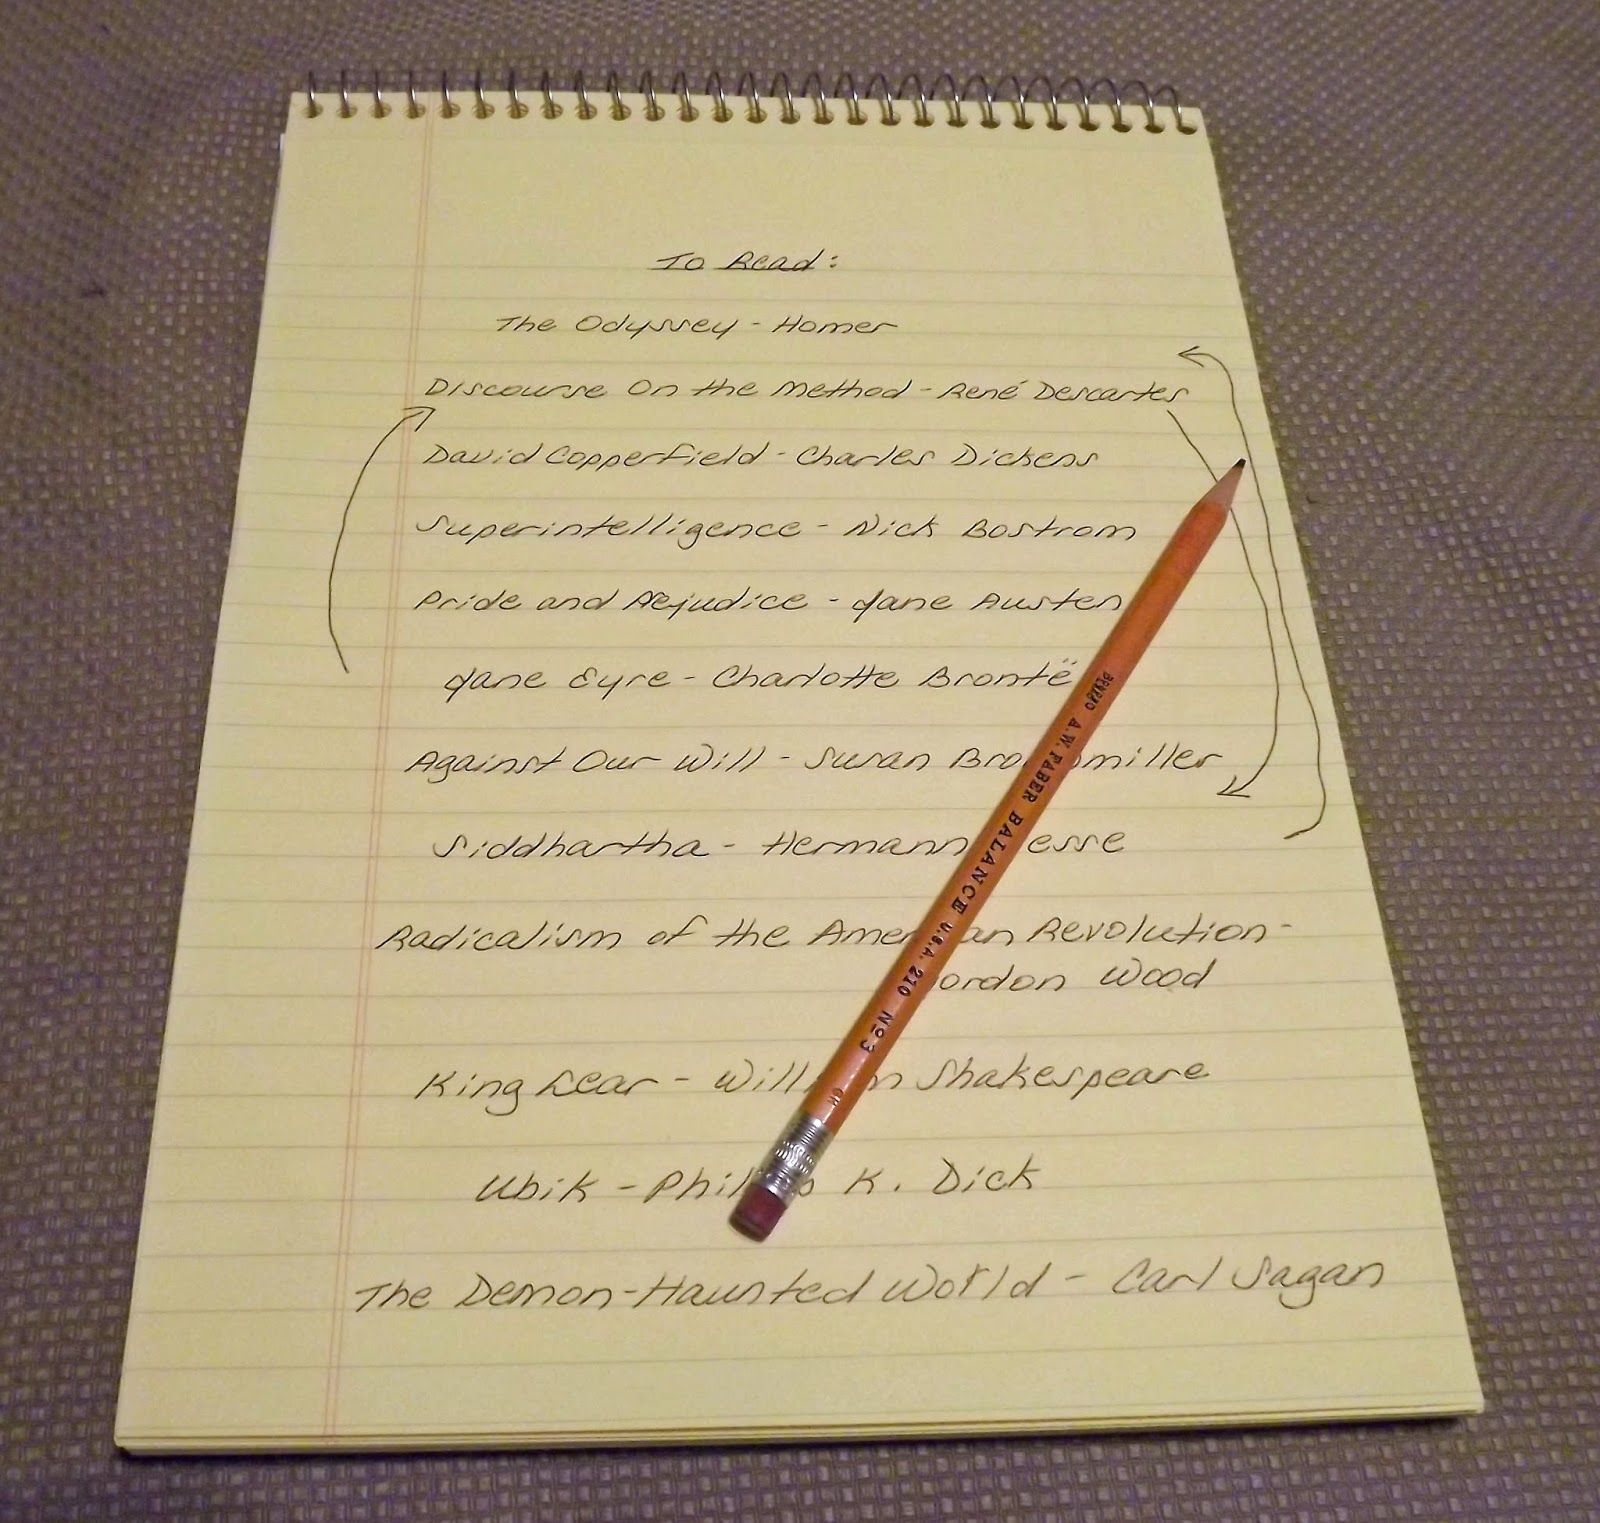 To Read:
The Odyssey - Homer
Discourse On the Method - René Descartes
David Copperfield - Charles Dickens
Superintelligence - Nick Bostrom
Pride and Prejudice - Jane Austen
Jane Eyre - Charlotte Brontë
Against Our Will - Susan Bro miller
Siddhartha - Hermann esse
Radicalism of the Amer an Revolution -
ordon Wood
King Lear - Will m Shakespeare
Ubik - Phil p K. Dick
The Demon-Haunted World - Carl Sagan
BEMXMO A.W. FABER BALANCE U.S.A. 210 Nº3 CK